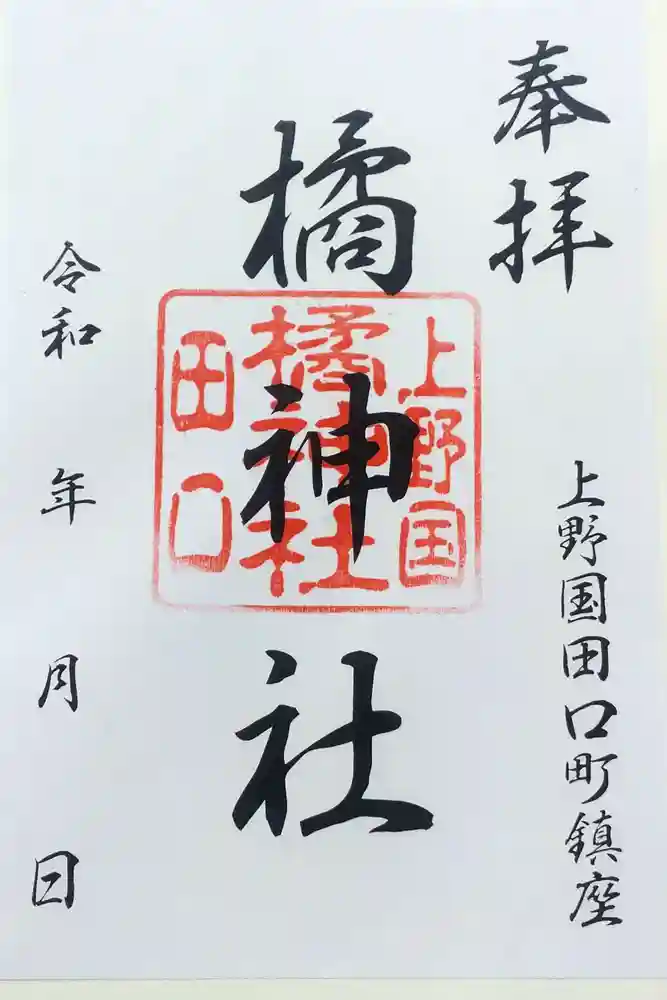 奉拝
上野国田口町鎮座
橘神社
上野国
橘神社
田口
令和 年 月 日